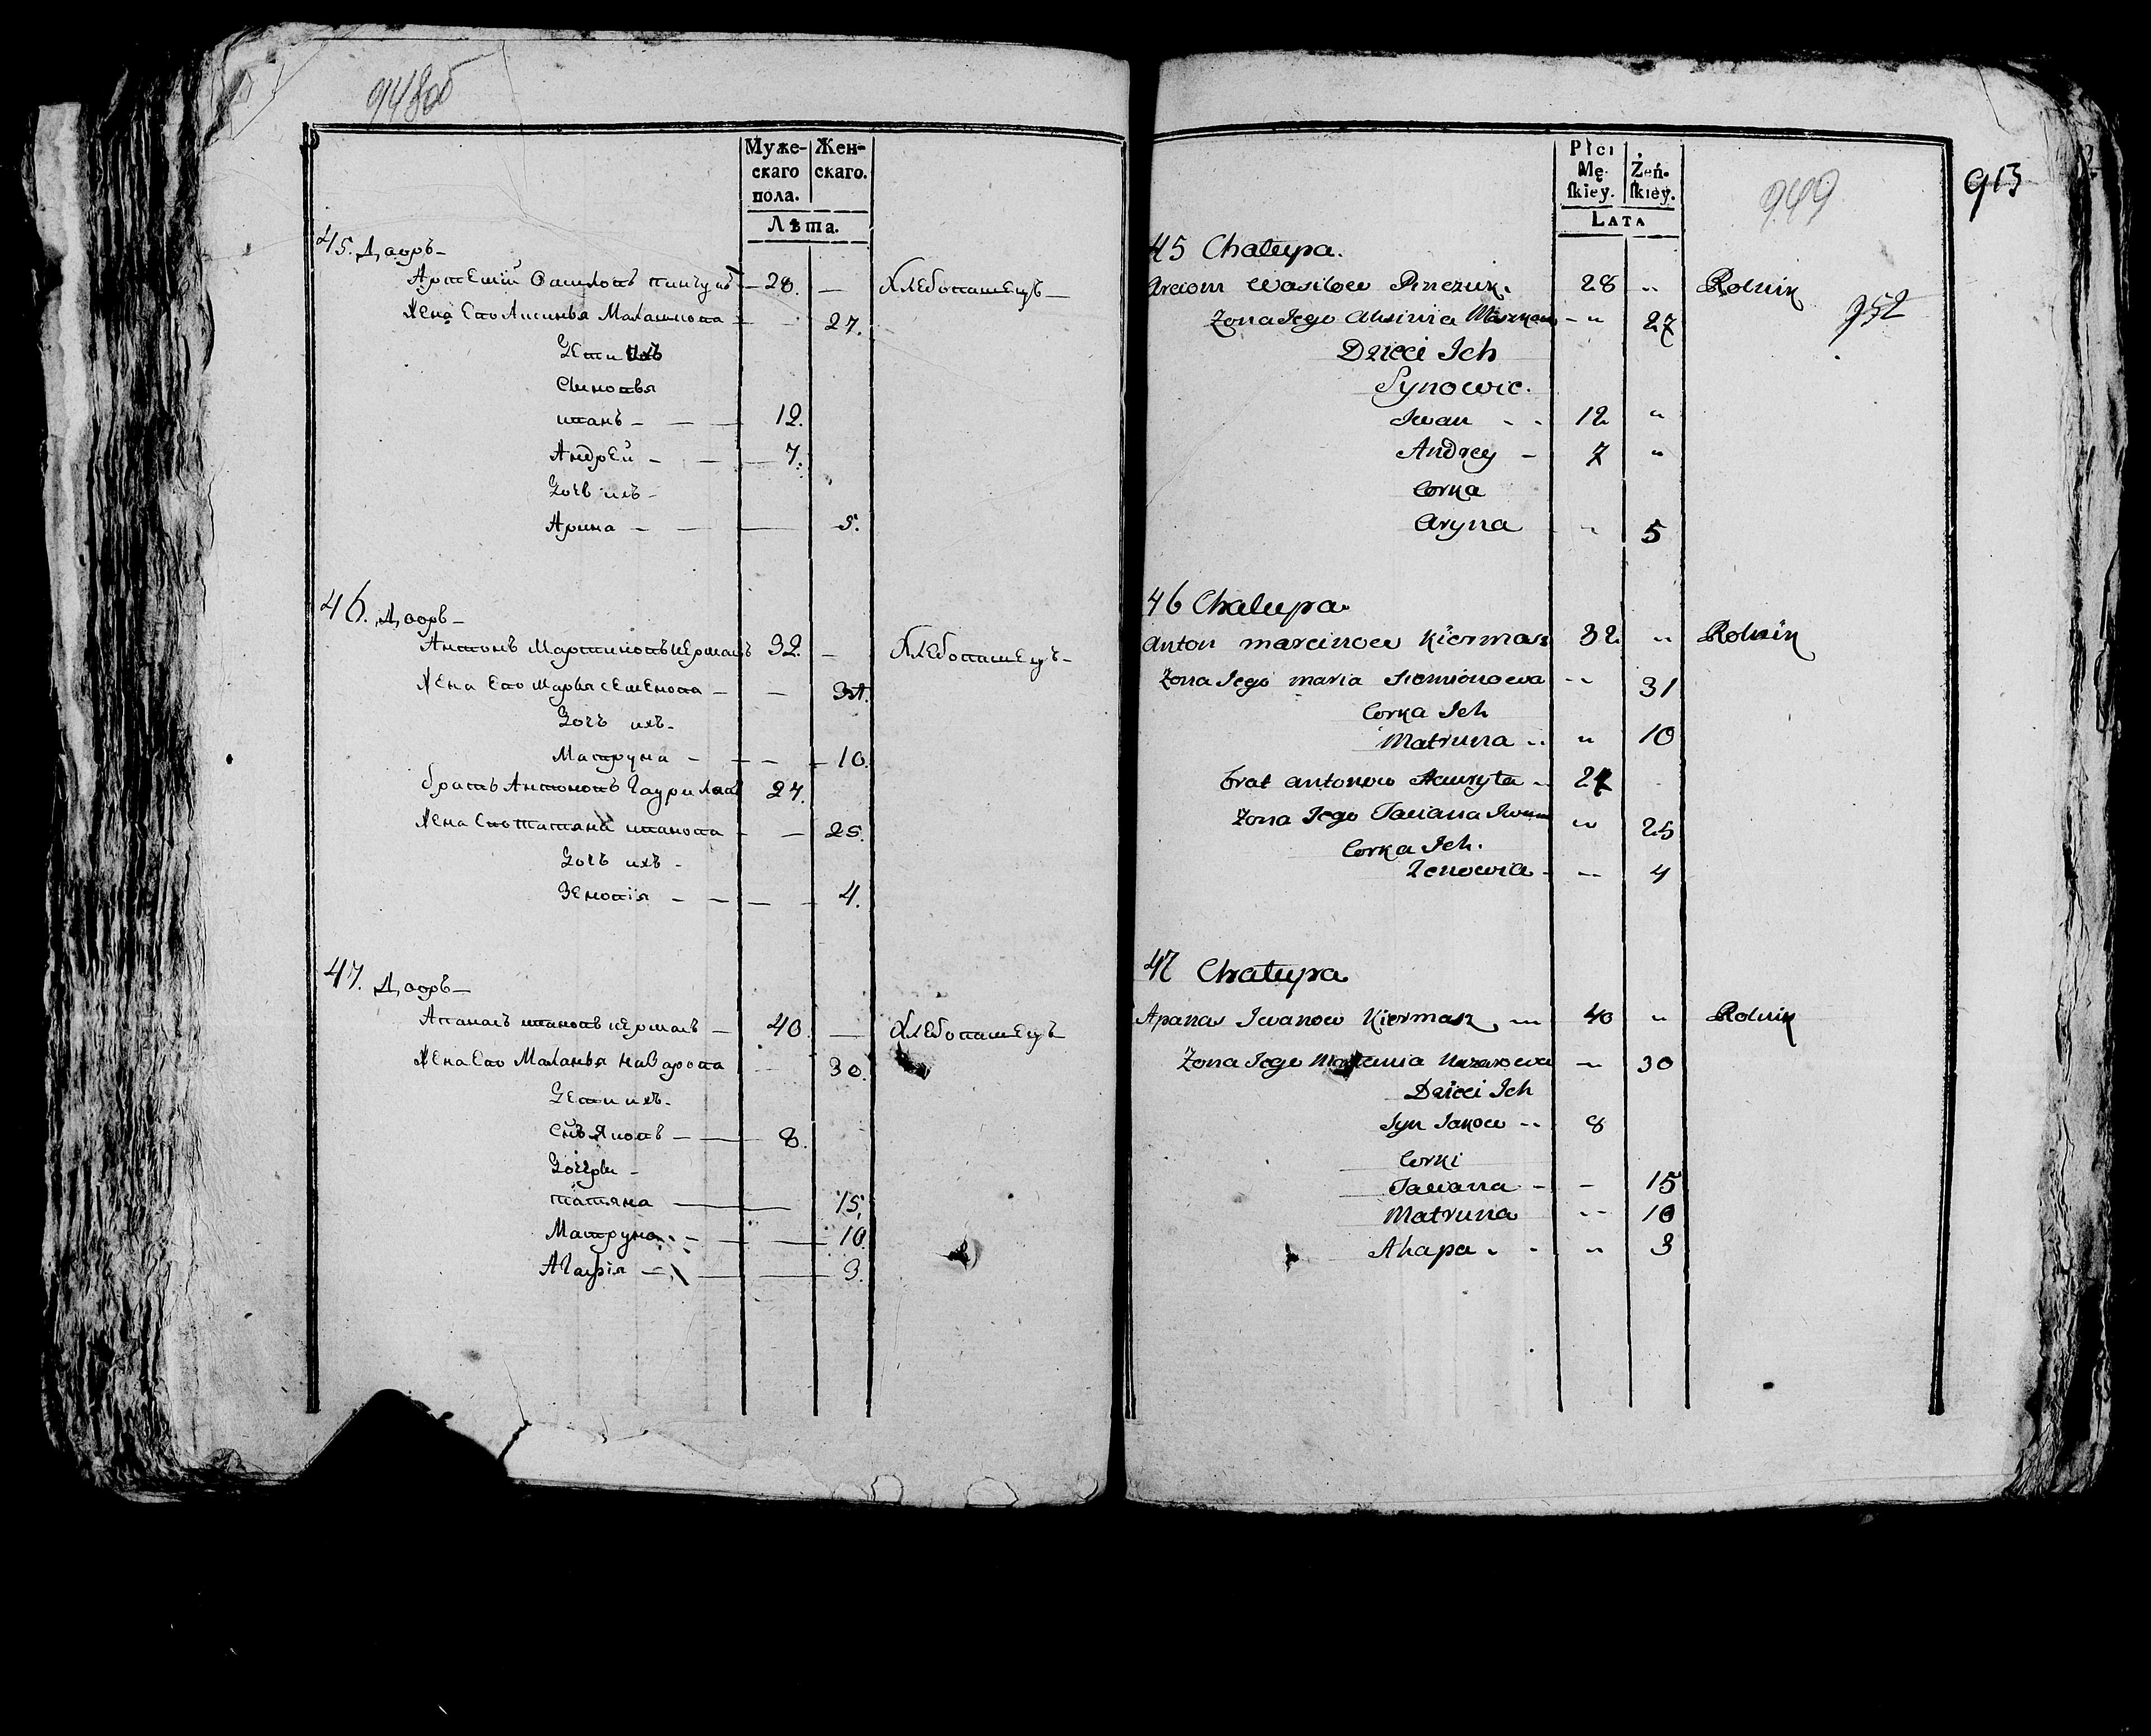 948об
Муже-
скаго
пола.
Жен-
скаго.
Лѣта.
45. Дворъ
Артемій Василовъ пинчукъ 28. Хлебопашецъ
Жена Его Аксинья 27.
Дети ихъ
Сыновья
иванъ 12.
Андрей 7.
Дочь ихъ
Арина 5.
46. Дворъ
Антонъ Мартиновъ кермашъ 32. Хлебопашецъ
Жена Его Марья семенова 31.
Дочъ ихъ
Матруна 10.
братъ Антоновъ Гаурила 27.
Жена Его Татяна иванова 25.
Дочъ ихъ
Зеновія 4.
47. Дворъ
Апанасъ ивановъ кермашъ 40. Хлебопашецъ
Жена Его Маланья назарова 30.
Дети ихъ
Сынъ Яковъ 8.
Дочери
татяна 15.
Матруна 10.
Агапія 3.
Płci
Mę-
ſkiey.
Żeń-
ſkiey.
LATA
949
913
952
45 Chałupa.
Arciom Wasilow Pinczuk. 28 " Rolnik
Żona Jego Aksinia " 27
Dzieci Ich
Synowie.
Iwan 12 "
Andrey 7 "
Corka
Aryna " 5
46 Chałupa
Anton Marcinow Kiermasz 32 " Rolnik
Żona Jego Maria Siemionowa " 31
Corka Ich
Matruna " 10
brat Antonow Hauryła 27
Żona Jego Taciana Iwan " 25
Corka Ich.
Zenowia " 4
47 Chałupa
Apanas Iwanow Kiermasz 40 " Rolnik
Żona Jego Małania Nazarowa " 30
Dzieci Ich
Syn Jakow 8
Corki
Taciana - 15
Matruna " 10
Ahapa " 3